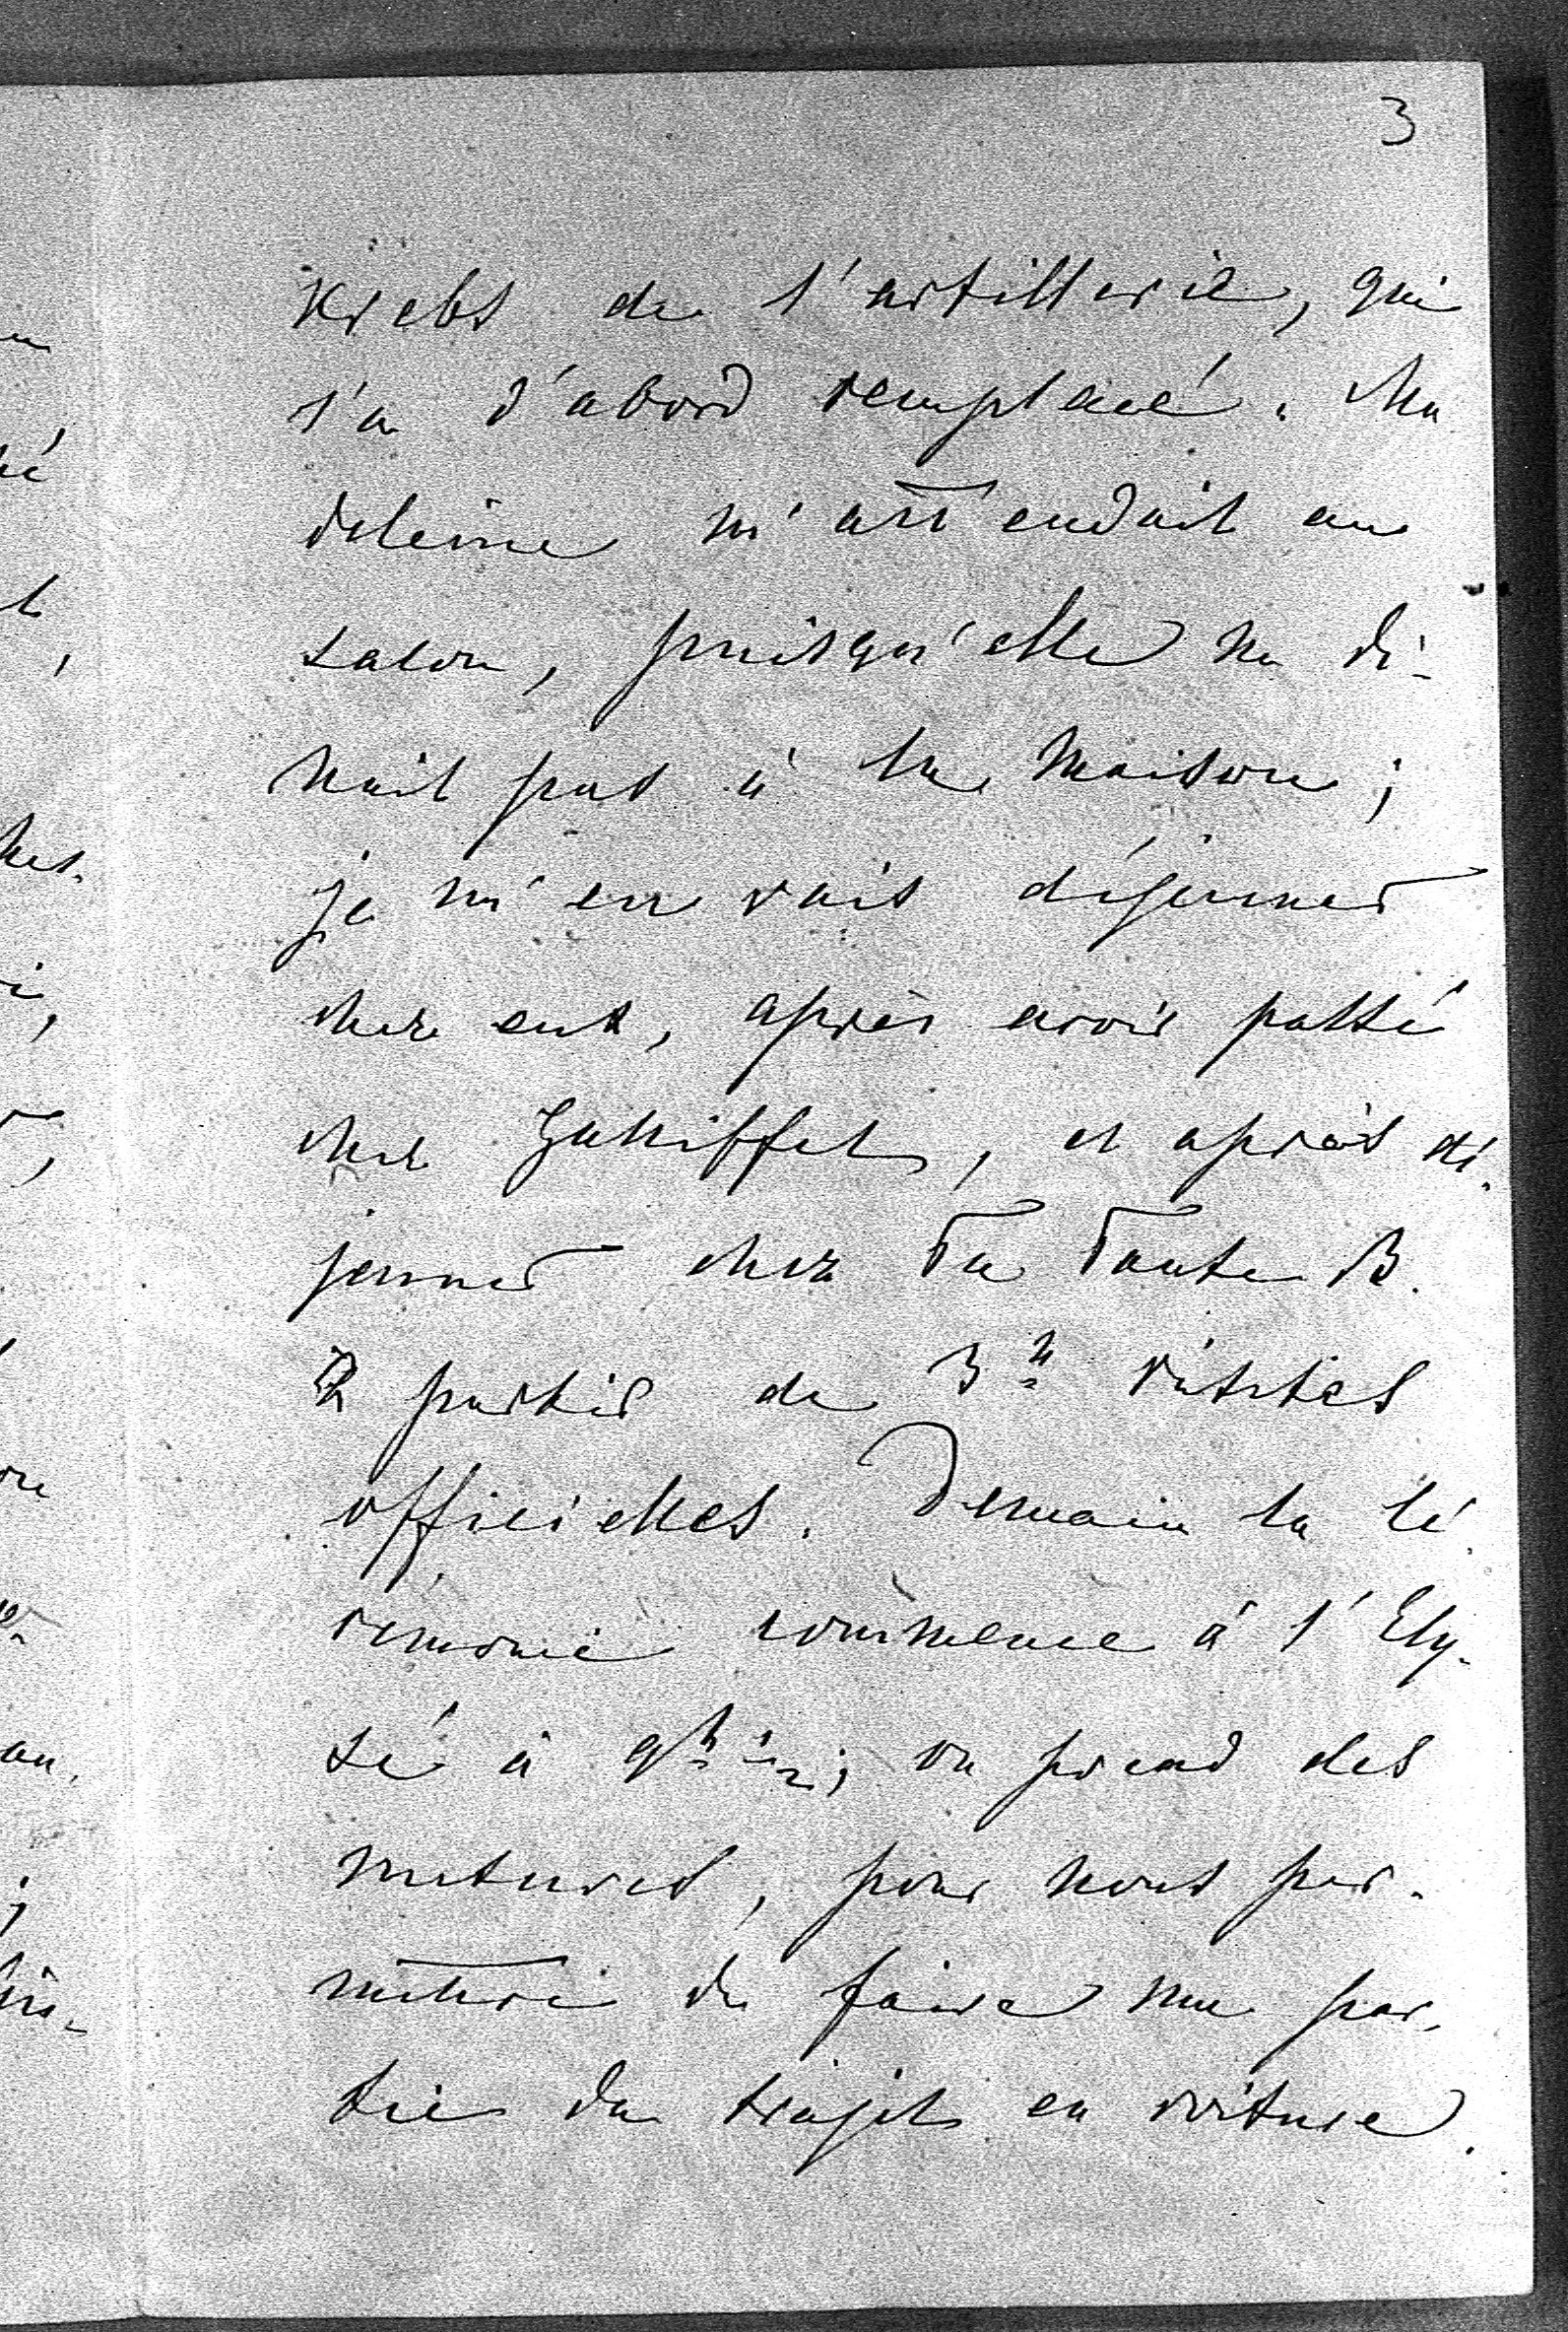 3
Krebs de l'artillerie, qui
l'a d'abord remplacé. Ma
deleine m'attendait au
salon, puisqu'elle ne dî-
nait pas à la maison;
je m'en vais déjeuner
chez eux, après avoir passé
chez Galliffet, et après dé-
jeuner chez Ta Tante B.
à partir de 3h visites
officielles. Demain la cé
rémonie commence à l'Ely-
sé à 9h 1/2; on prend des
mesures, pour nous per-
mettre de faire une par-
tie du trajet en voiture.